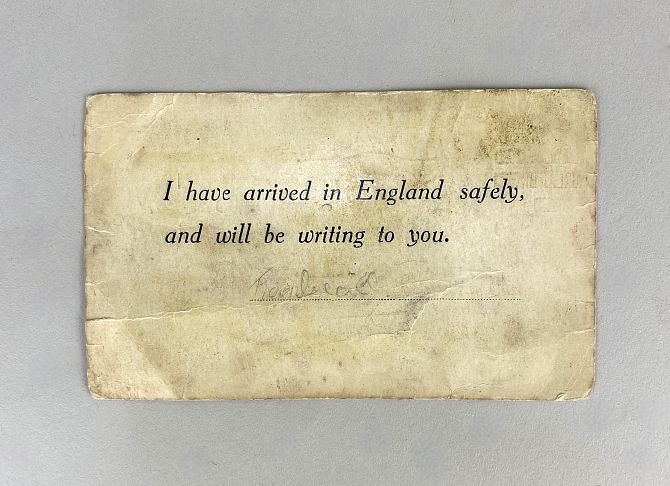 I have arrived in England safely,
and will be writing to you.